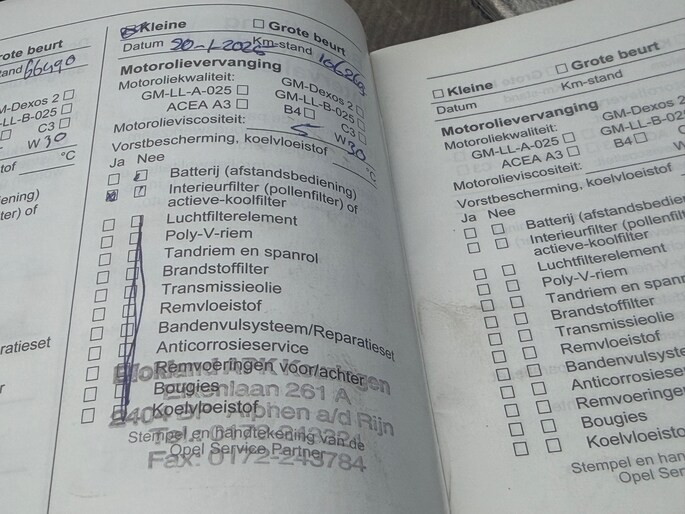 rote beurt
tand 66490
M-Dexos 2
M-LL-B-025
C3
W 30
tof °C
ening)
ter) of
ratieset
r
Kleine Grote beurt
Datum 20-1- Km-stand
Motorolievervanging
Motoroliekwaliteit: GM-Dexos 2
GM-LL-A-025 GM-LL-B-025
ACEA A3 B4 C3
Motorolieviscositeit: 5 W 30
Vorstbescherming, koelvloeistof °C
Ja Nee
Batterij (afstandsbediening)
Interieurfilter (pollenfilter) of
actieve-koolfilter
Luchtfilterelement
Poly-V-riem
Tandriem en spanrol
Brandstoffilter
Transmissieolie
Remvloeistof
Bandenvulsysteem/Reparatieset
Anticorrosieservice
Remvoeringen voor/achter
Bougies
Koelvloeistof
Stempel en handtekening van de
Opel Service Partner
261 A
a/d Rijn
Fax: 0172-243784
Kleine Grote beurt
Datum Km-stand
Motorolievervanging
Motoroliekwaliteit: GM-Dexos
GM-LL-A-025 GM-LL-B-02
ACEA A3 B4
Motorolieviscositeit:
Vorstbescherming, koelvloeistof
Ja Nee
Batterij (afstandsbedie
Interieurfilter (pollenfilt
actieve-koolfilter
Luchtfilterelement
Poly-V-riem
Tandriem en spanro
Brandstoffilter
Transmissieolie
Remvloeistof
Bandenvulsyste
Anticorrosieser
Remvoeringen
Bougies
Koelvloeistof
Stempel en han
Opel Service